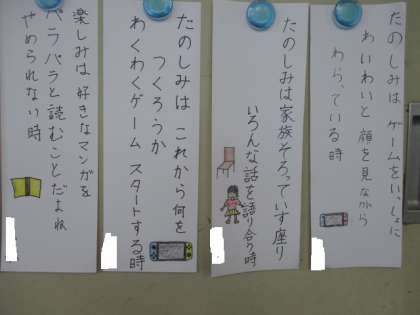 たのしみは ゲームをいっしょに
わいわいと 顔を見ながら
わらっている時
たのしみは家族そろっていす座り
いろんな話を語り合う時
たのしみは これから何を
つくろうか
わくわくゲーム スタートする時
楽しみは好きなマンガを
パラパラと読むことだよね
やめられない時